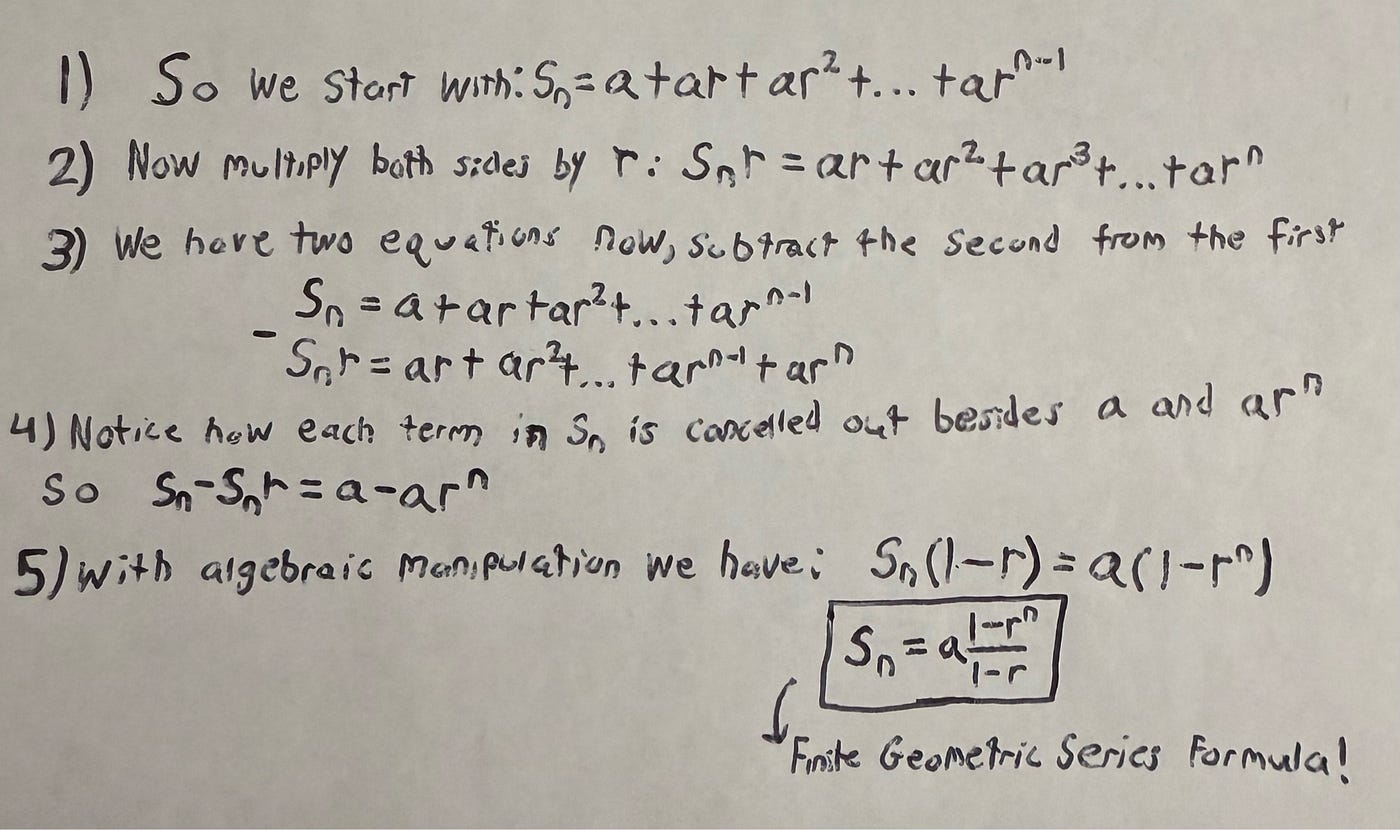 1) So we start with: Sₙ = a + ar + ar² + ... + arⁿ⁻¹
2) Now multiply both sides by r: Sₙr = ar + ar² + ar³ + ... + arⁿ
3) We have two equations now, subtract the second from the first
Sₙ = a + ar + ar² + ... + arⁿ⁻¹
-
Sₙr = ar + ar² + ... + arⁿ⁻¹ + arⁿ
4) Notice how each term in Sₙ is cancelled out besides a and arⁿ
so Sₙ - Sₙr = a - arⁿ
5) With algebraic manipulation we have: Sₙ(1-r) = a(1-rⁿ)
Sₙ = a (1-rⁿ)/(1-r)
Finite Geometric Series Formula!